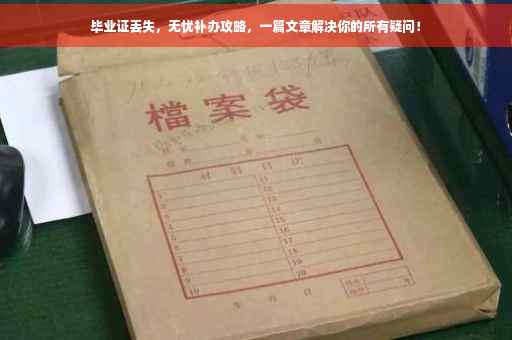 毕业证丢失，无忧补办攻略，一篇文章解决你的所有疑问！
檔案袋
材料目次
1 11
2 12
3 13
4 14
5 15
6 16
7 17
8 18
9 19
10 20
年月日